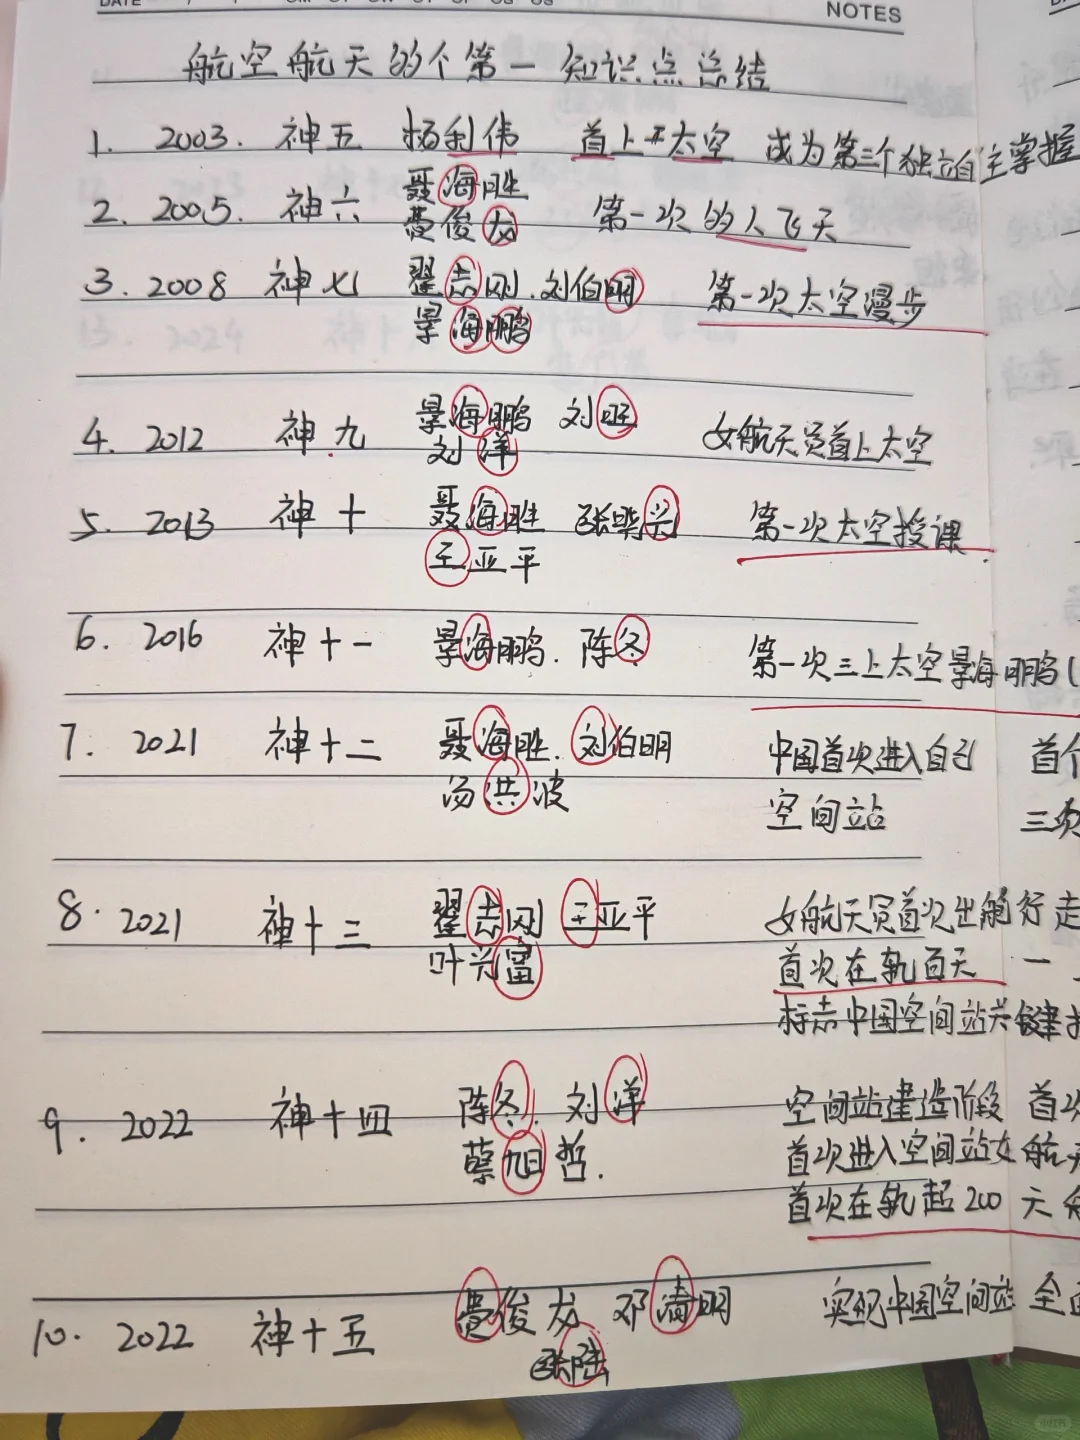 DATE
NOTES
航空航天的个第一知识点总结
1. 2003. 神五 杨利伟 首上太空 成为第三个独立自主掌握
2. 2005. 神六 聂海胜 费俊龙 第一次的人飞天
3. 2008 神七 翟志刚.刘伯明 第一次太空漫步
景海鹏
4. 2012 神九 景海鹏 刘旺 女航天员首上太空
刘洋
5. 2013 神十 聂海胜 张晓光 第一次太空授课.
王亚平
6. 2016 神十一 景海鹏. 陈冬 第一次三上太空景海鹏(
7. 2021 神十二 聂海胜. 刘伯明 中国首次进入自己 首个
汤洪波 空间站 三项
8. 2021 神十三 翟志刚 王亚平 女航天员首次出舱行走
叶光富 首次在轨百天 一
标志中国空间站关键技
9. 2022 神十四 陈冬. 刘洋 空间站建造阶段 首次
蔡旭哲. 首次进入空间站女航天
首次在轨超200天
10. 2022 神十五 费俊龙 邓清明 实现中国空间站全面
张陆
小红书